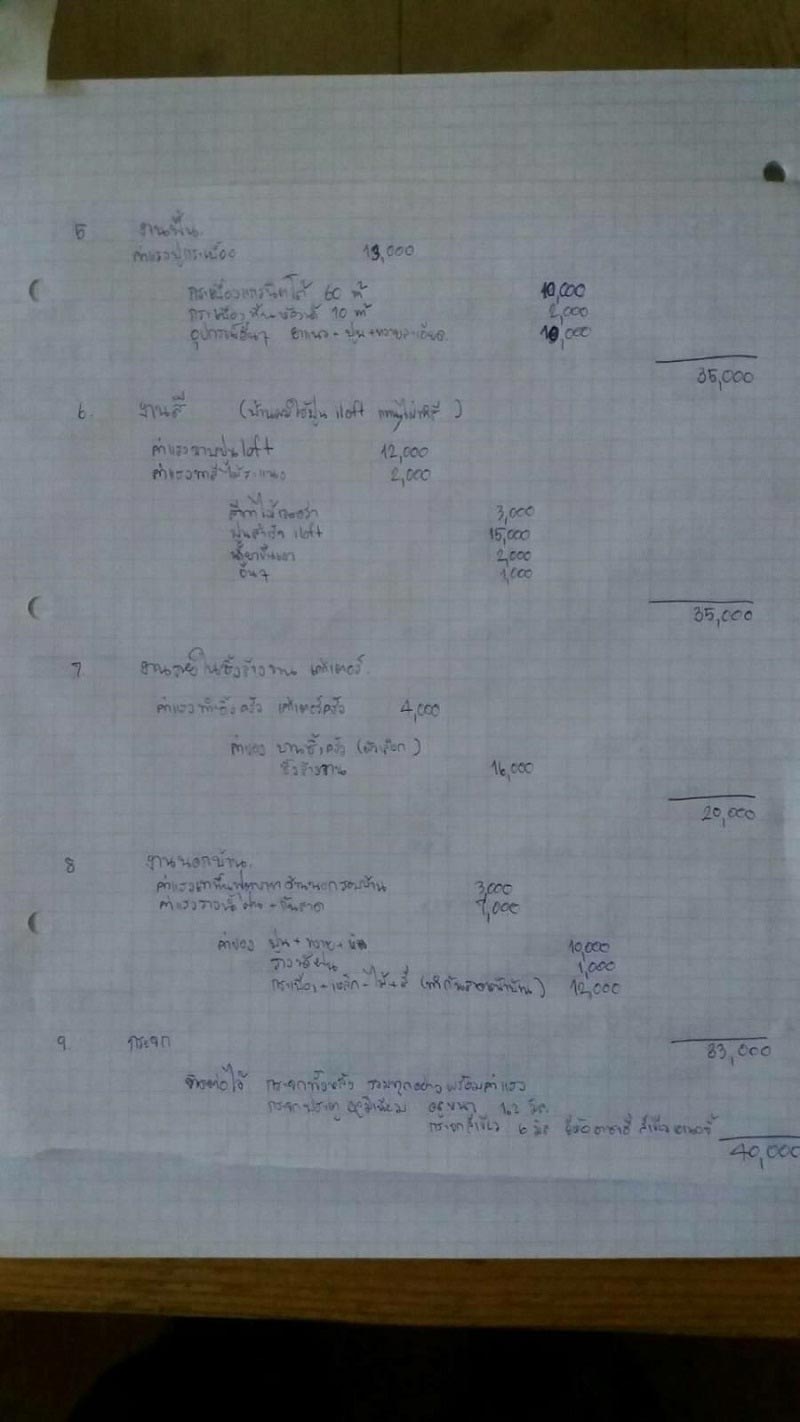 5 งานพื้น.
ค่าแรงปูกระเบื้อง 13,000
กระเบื้องแกรนิตโต้ 60 ม² 10,000
กระเบื้อง ห้องน้ำ 10 ม² 2,000
อุปกรณ์อื่นๆ ยาแนว + ปูน + ทรายละเอียด 10,000
35,000
6. งานสี (บ้านผมใช้ปูน loft )
ค่าแรงฉาบปูน loft 12,000
ค่าแรงทาสีไม้ระแนง 2,000
สีทาไม้ 3,000
ปูนสำเร็จ loft 15,000
น้ำยาขึ้นเงา 2,000
อื่นๆ 1,000
35,000
7 งานภายใน ซิ้งล้างจาน เค้าเตอร์.
ค่าแรงทำซิ้งครัว เค้าเตอร์ครัว 4,000
ค่าของ บานซิ้งครัว
ซิ้งล้างจาน 16,000
20,000
8 งานนอกบ้าน.
ค่าแรงเทพื้น ด้านนอกรอบบ้าน 3,000
ค่าแรงรางน้ำฝน + กันสาด 7,000
ค่าของ ปูน + ทราย + หิน 10,000
รางน้ำฝน 1,000
กระเบื้อง + เหล็ก + ไม้ + สี (ทำกันสาดหน้าบ้าน) 12,000
33,000
9. กระจก
กระจกทั้งหลัง รวมทุกอย่างพร้อมค่าแรง
กระจกประตู อลูมิเนียม หนา 1.2 มิล
กระจกสีเขียว 6 มิล
40,000